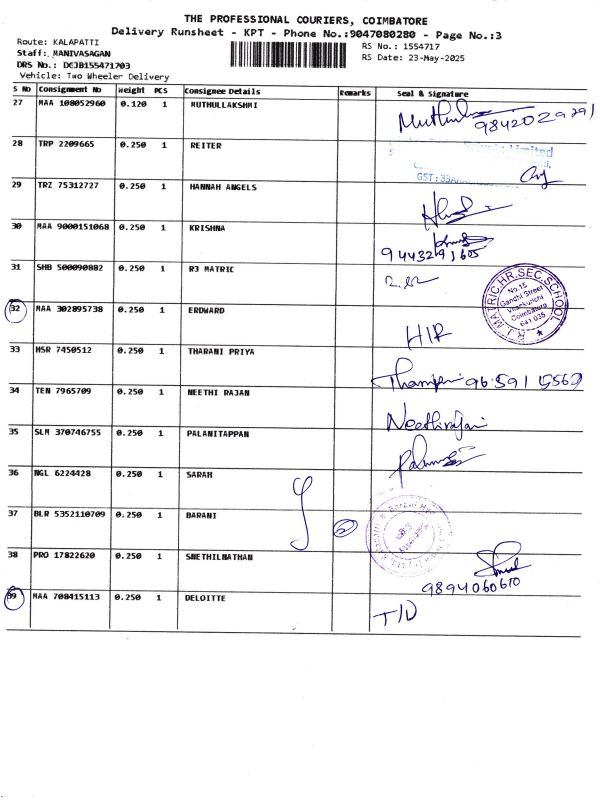 THE PROFESSIONAL COURIERS, COIMBATORE
Delivery Runsheet - KPT - Phone No.:9047080280 - Page No.:3
Route: KALAPATTI
Staff: MANIVASAGAN
DRS No.: DCJB155471703
Vehicle: Two Wheeler Delivery
RS No.: 1554717
RS Date: 23-May-2025
S No Consignment No Weight PCS Consignee Details Remarks Seal & Signature
27 MAA 108052960 0.120 1 MUTHULLAKSHMI
28 TRP 2209665 0.250 1 REITER Limited
GST:
29 TRZ 75312727 0.250 1 HANNAH ANGELS
30 MAA 9000151068 0.250 1 KRISHNA 9443291605
31 SHB 500090882 0.250 1 RJ MATRIC
R.J. MATRIC.HR.SEC.SCHOOL
No.15
Gandhi Street
Vilankurichi
Coimbatore
641 035
32 MAA 302895738 0.250 1 ERDWARD HIR
33 HSR 7450512 0.250 1 THARANI PRIYA
34 TEN 7965709 0.250 1 NEETHI RAJAN Neethirajan
35 SLM 370746755 0.250 1 PALANITAPPAN
36 NGL 6224428 0.250 1 SARAH
37 BLR 5352110709 0.250 1 BARANI
38 PRO 17822620 0.250 1 SNETHILNATHAN 9894060610
39 MAA 708415113 0.250 1 DELOITTE T/D